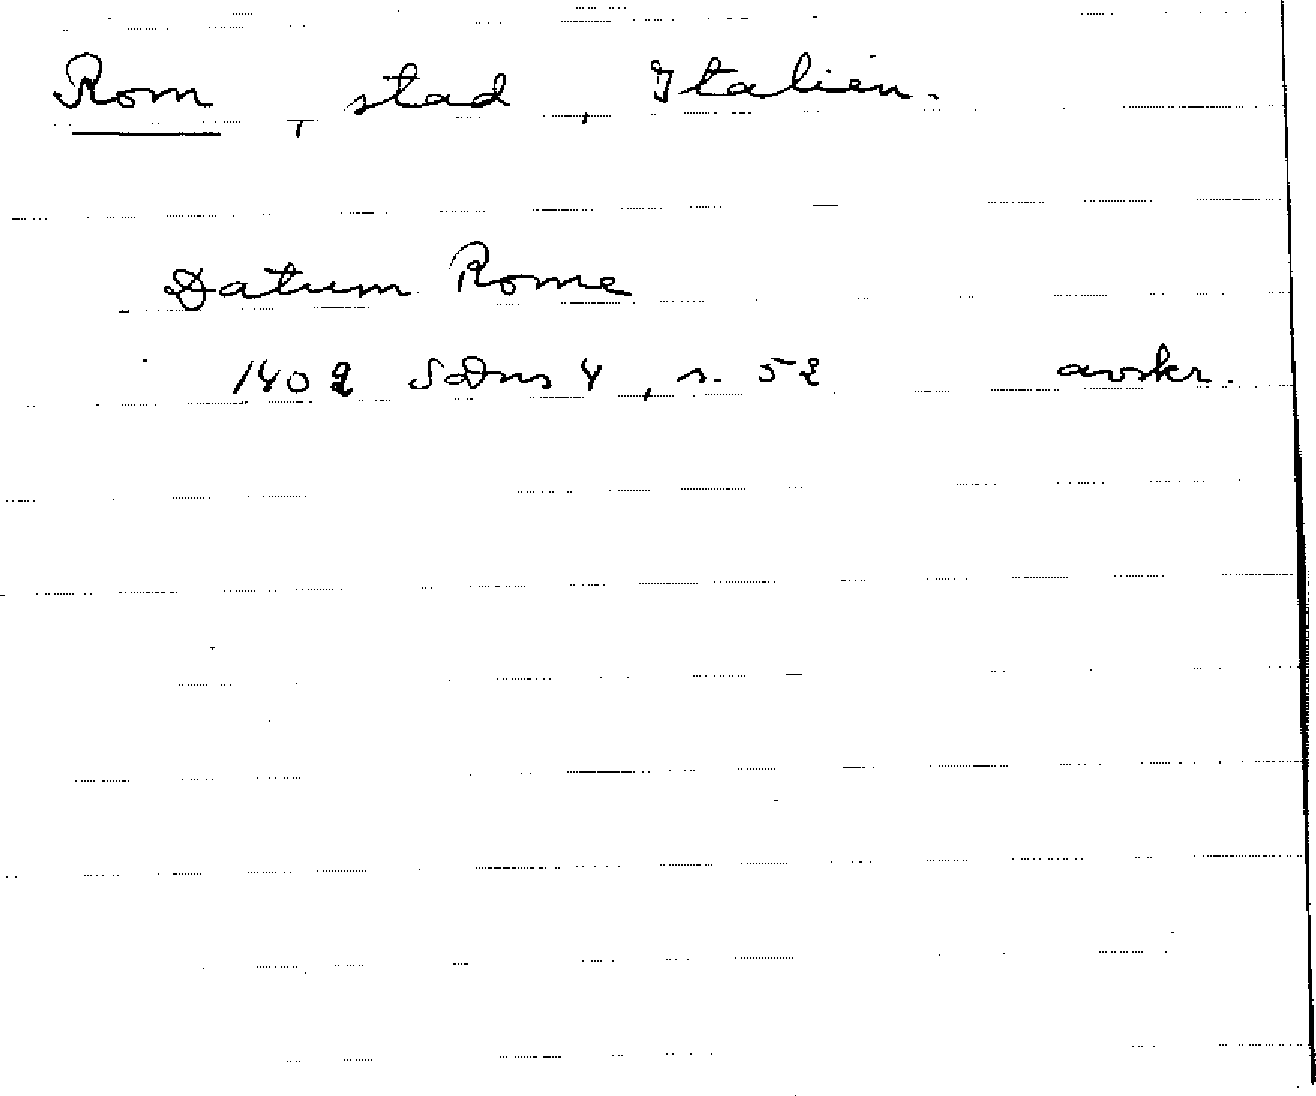 Rom, stad, Italien.
Datum Rome
1402 SDns 4, s. 52 avskr.